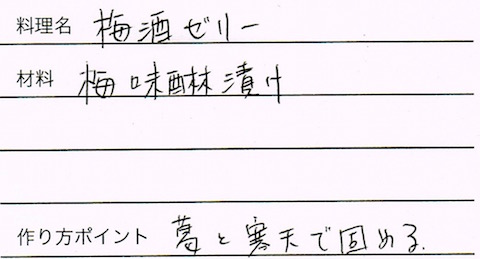 料理名 梅酒ゼリー
材料 梅味醂漬け
作り方ポイント 葛と寒天で固める.